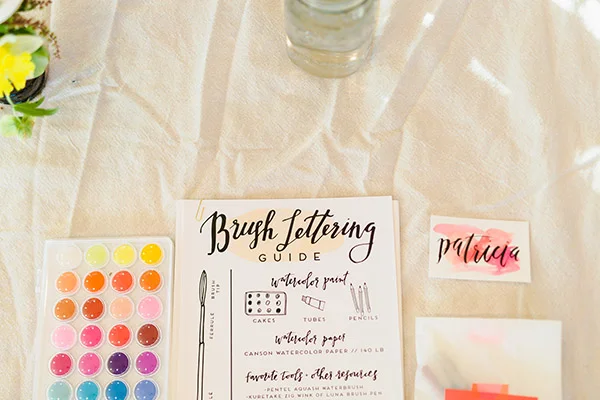 Brush Lettering
GUIDE
BRUSH TIP
FERRULE
watercolor paint
CAKES TUBES PENCILS
watercolor paper
CANSON WATERCOLOR PAPER // 140 LB
favorite tools + other resources
- PENTEL AQUASH WATERBRUSH
- KURETAKE ZIG WINK OF LUNA BRUSH PEN
patricia